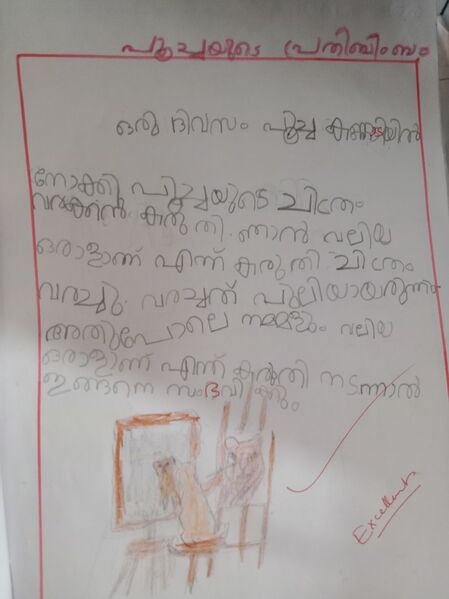 പൂച്ചയുടെ പ്രതിബിംബം
ഒരു ദിവസം പൂച്ച കണ്ണാടിയിൽ
നോക്കി പൂച്ചയുടെ ചിത്രം
വരക്കാൻ കരുതി. ഞാൻ വലിയ
ഒരാളാണ് എന്ന് കരുതി ചിത്രം
വരച്ചു. വരച്ചത് പുലിയായിരുന്നു
അതുപോലെ നമ്മളും വലിയ
ഒരാളാണ് എന്ന് കരുതി നടന്നാൽ
ഇങ്ങനെ സംഭവിക്കും
Excellent